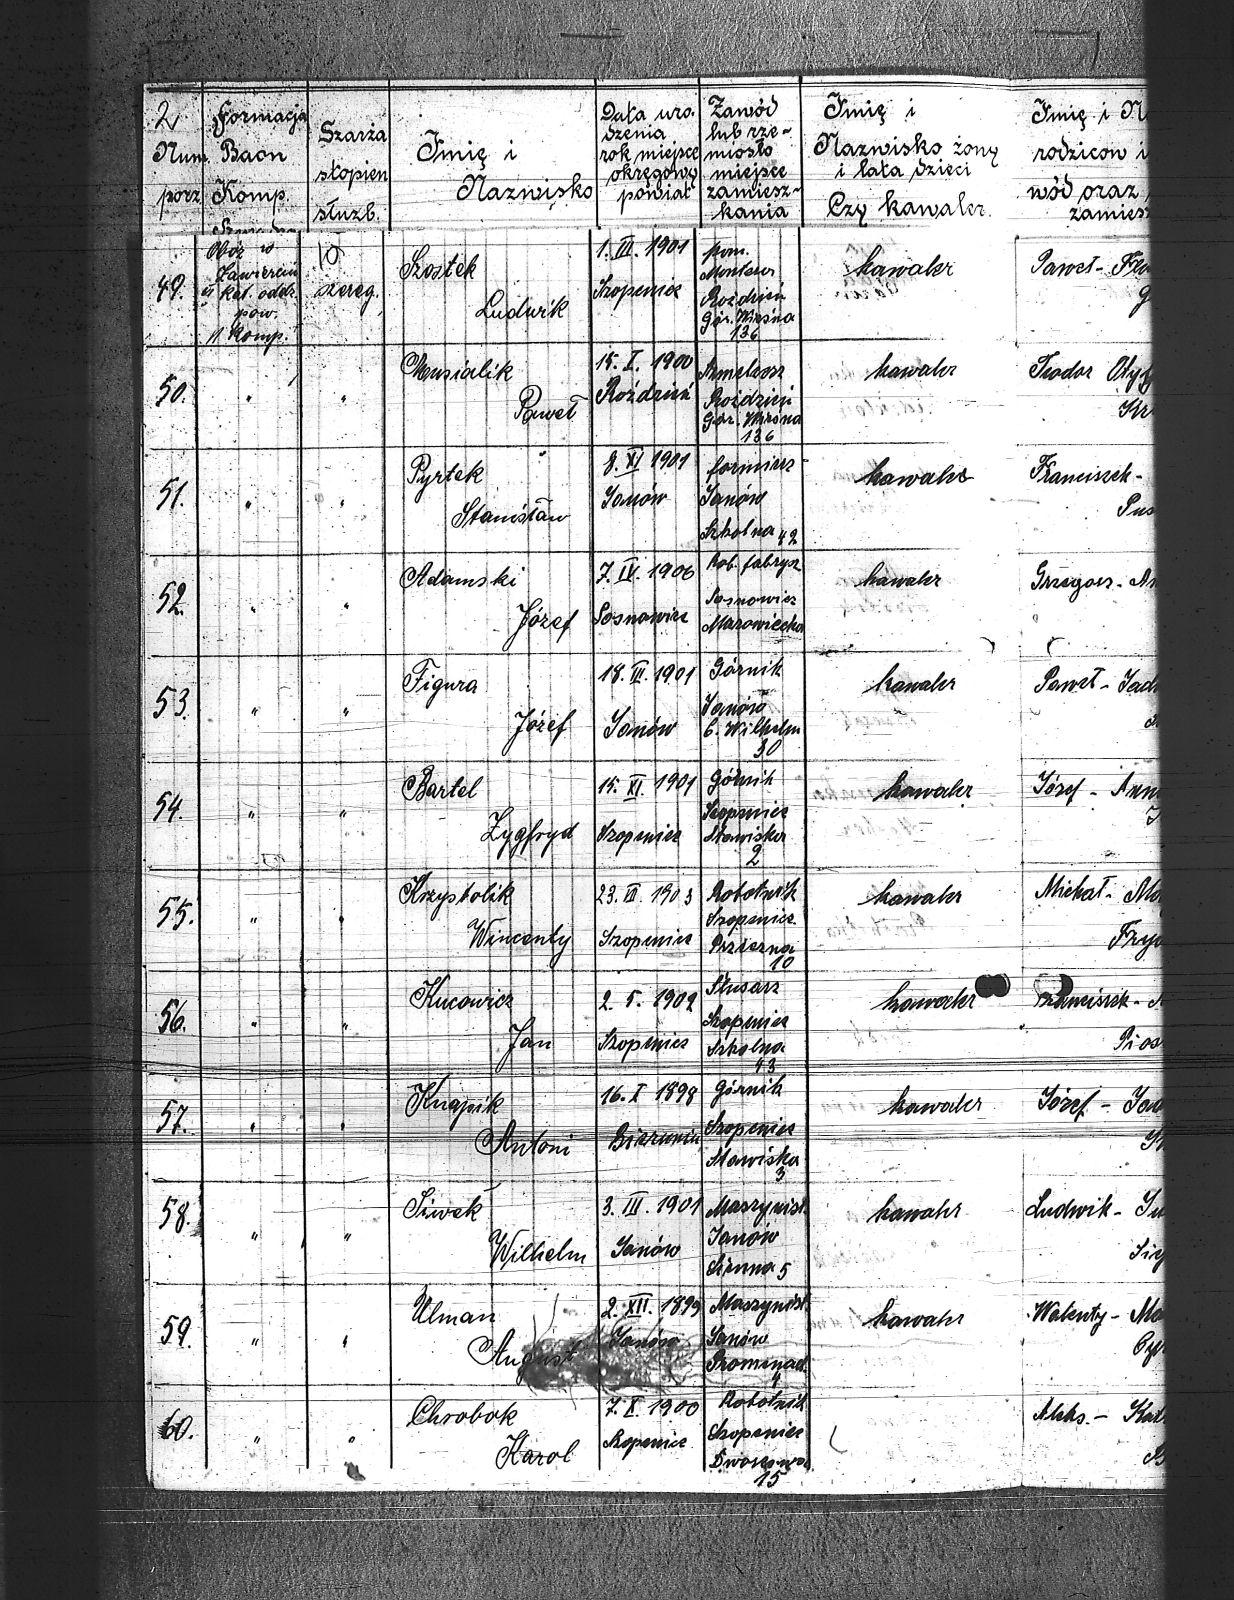 2
Num.
porz.
Formacja
Baon
Komp.
Szarża
stopień
służb.
Imię i
Nazwisko
Data uro-
dzenia
rok miejsce
okręgowy
powiat
Zawód
lub rze-
miosło
miejsce
zamiesz-
kania
Imię i
Nazwisko żony
i lata dzieci
Czy kawaler.
Imię i N
rodzicow i
wód oraz
zamies
49.
Obóz w
Zawierciu
kat. oddz.
pow.
11 Komp.
szereg.
Szostek
Ludwik
1. III. 1901
Szopenice
Monter
Roździeń
Gór. Wiosna
136
kawaler
Paweł-
50.
"
"
Musialik
Paweł
15. I. 1900
Roździeń
Roździeń
Gór. Wiosna
136
kawaler
Teodor
51.
"
"
Pyrtek
Stanisław
8. XI 1901
Janów
formierz
Janów
Szkolna 42
kawaler
Franciszek-
52.
"
"
Adamski
Józef
7. IV. 1906
Sosnowiec
Rob. fabrycz
Sosnowiec
Mazowiecka
kawaler
Grzegorz-
53.
"
"
Figura
Józef
18. III. 1901
Janów
Górnik
Janów
C. Wilhelm
30
kawaler
Paweł- Jad
54.
"
"
Bartel
Zygfryd
15. XI. 1901
Szopenice
Górnik
Szopenice
Stawiska
2
kawaler
Józef - Ann
55.
"
"
Krzystolik
Wincenty
23. III. 1903
Szopenice
Robotnik
Szopenice
10
kawaler
Michał-
Fryd
56.
"
"
Kucowicz
Jan
2. 5. 1902
Szopenice
Ślusarz
Szopenice
Szkolna
43
kawaler
Franciszek-
Pios
57.
"
"
Knapik
Antoni
16. I 1898
Górnik
Szopenice
Stawiska
3
kawaler
Józef -
58.
"
"
Siwek
Wilhelm
3. III. 1901
Janów
Maszynist.
Janów
Sienna 5
kawaler
Ludwik-
59.
"
"
Ulman
August
2. XII. 1899
Janów
Maszynist
Janów
Promenad.
4
kawaler
Walenty-
60.
"
"
Chrobok
Karol
7. X. 1900
Szopenice
Robotnik
Szopenice
Dworcowa
15
Aleks. -